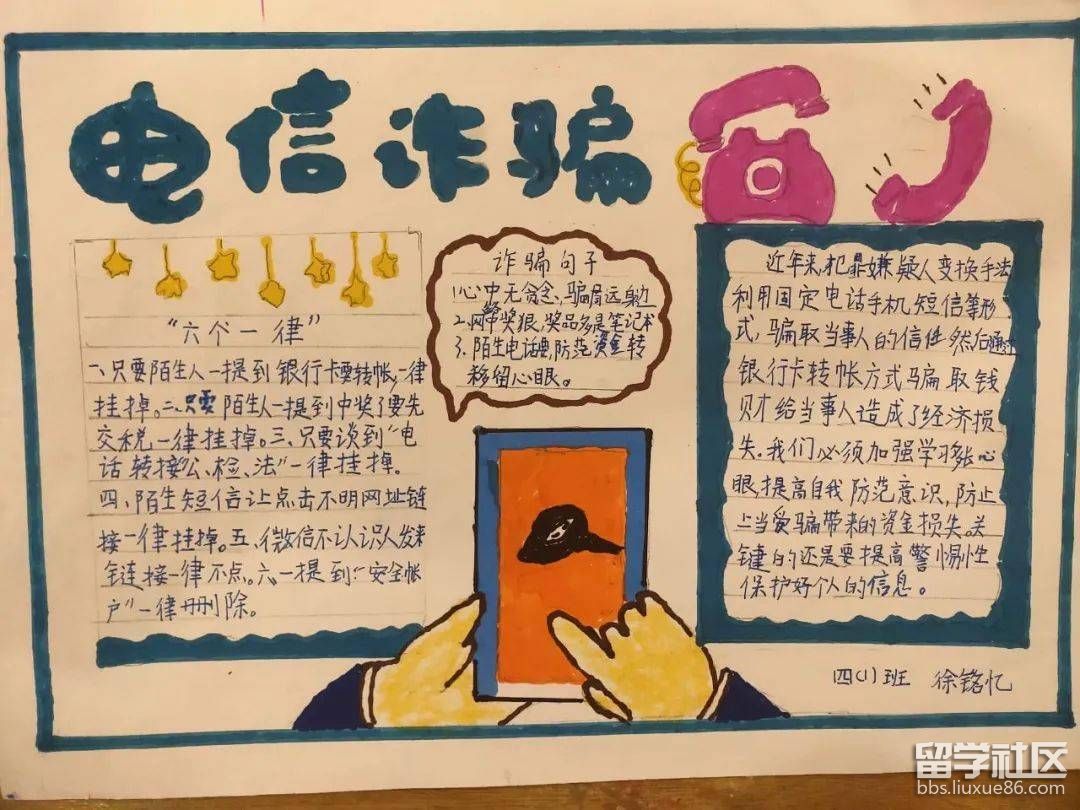 电信诈骗
"六个一律"
一、只要陌生人一提到银行卡要转帐,一律
挂掉。二、只要陌生人一提到中奖了要先
交税一律挂掉。三、只要谈到"电
话转接公、检、法"一律挂掉。
四、陌生短信让点击不明网址链
接一律挂掉。五、微信不认识人发来
链接一律不点。六、一提到"安全帐
户"一律删除。
诈骗句子
1.心中无贪念、骗局远身边
2.网中奖狠,奖品多是笔记本
3.陌生电话要,防范资金转
移留心眼。
近年来,犯罪嫌疑人变换手法
利用固定电话手机短信等形
式,骗取当事人的信任然后通过
银行卡转帐方式骗取钱
财给当事人造成了经济损
失。我们必须加强学习张心
眼提高自我防范意识,防止
上当受骗带来的资金损失。关
键的还是要提高警惕性
保护好个人的信息。
四(1)班 徐铭忆
留学社区
bbs.liuxue86.com